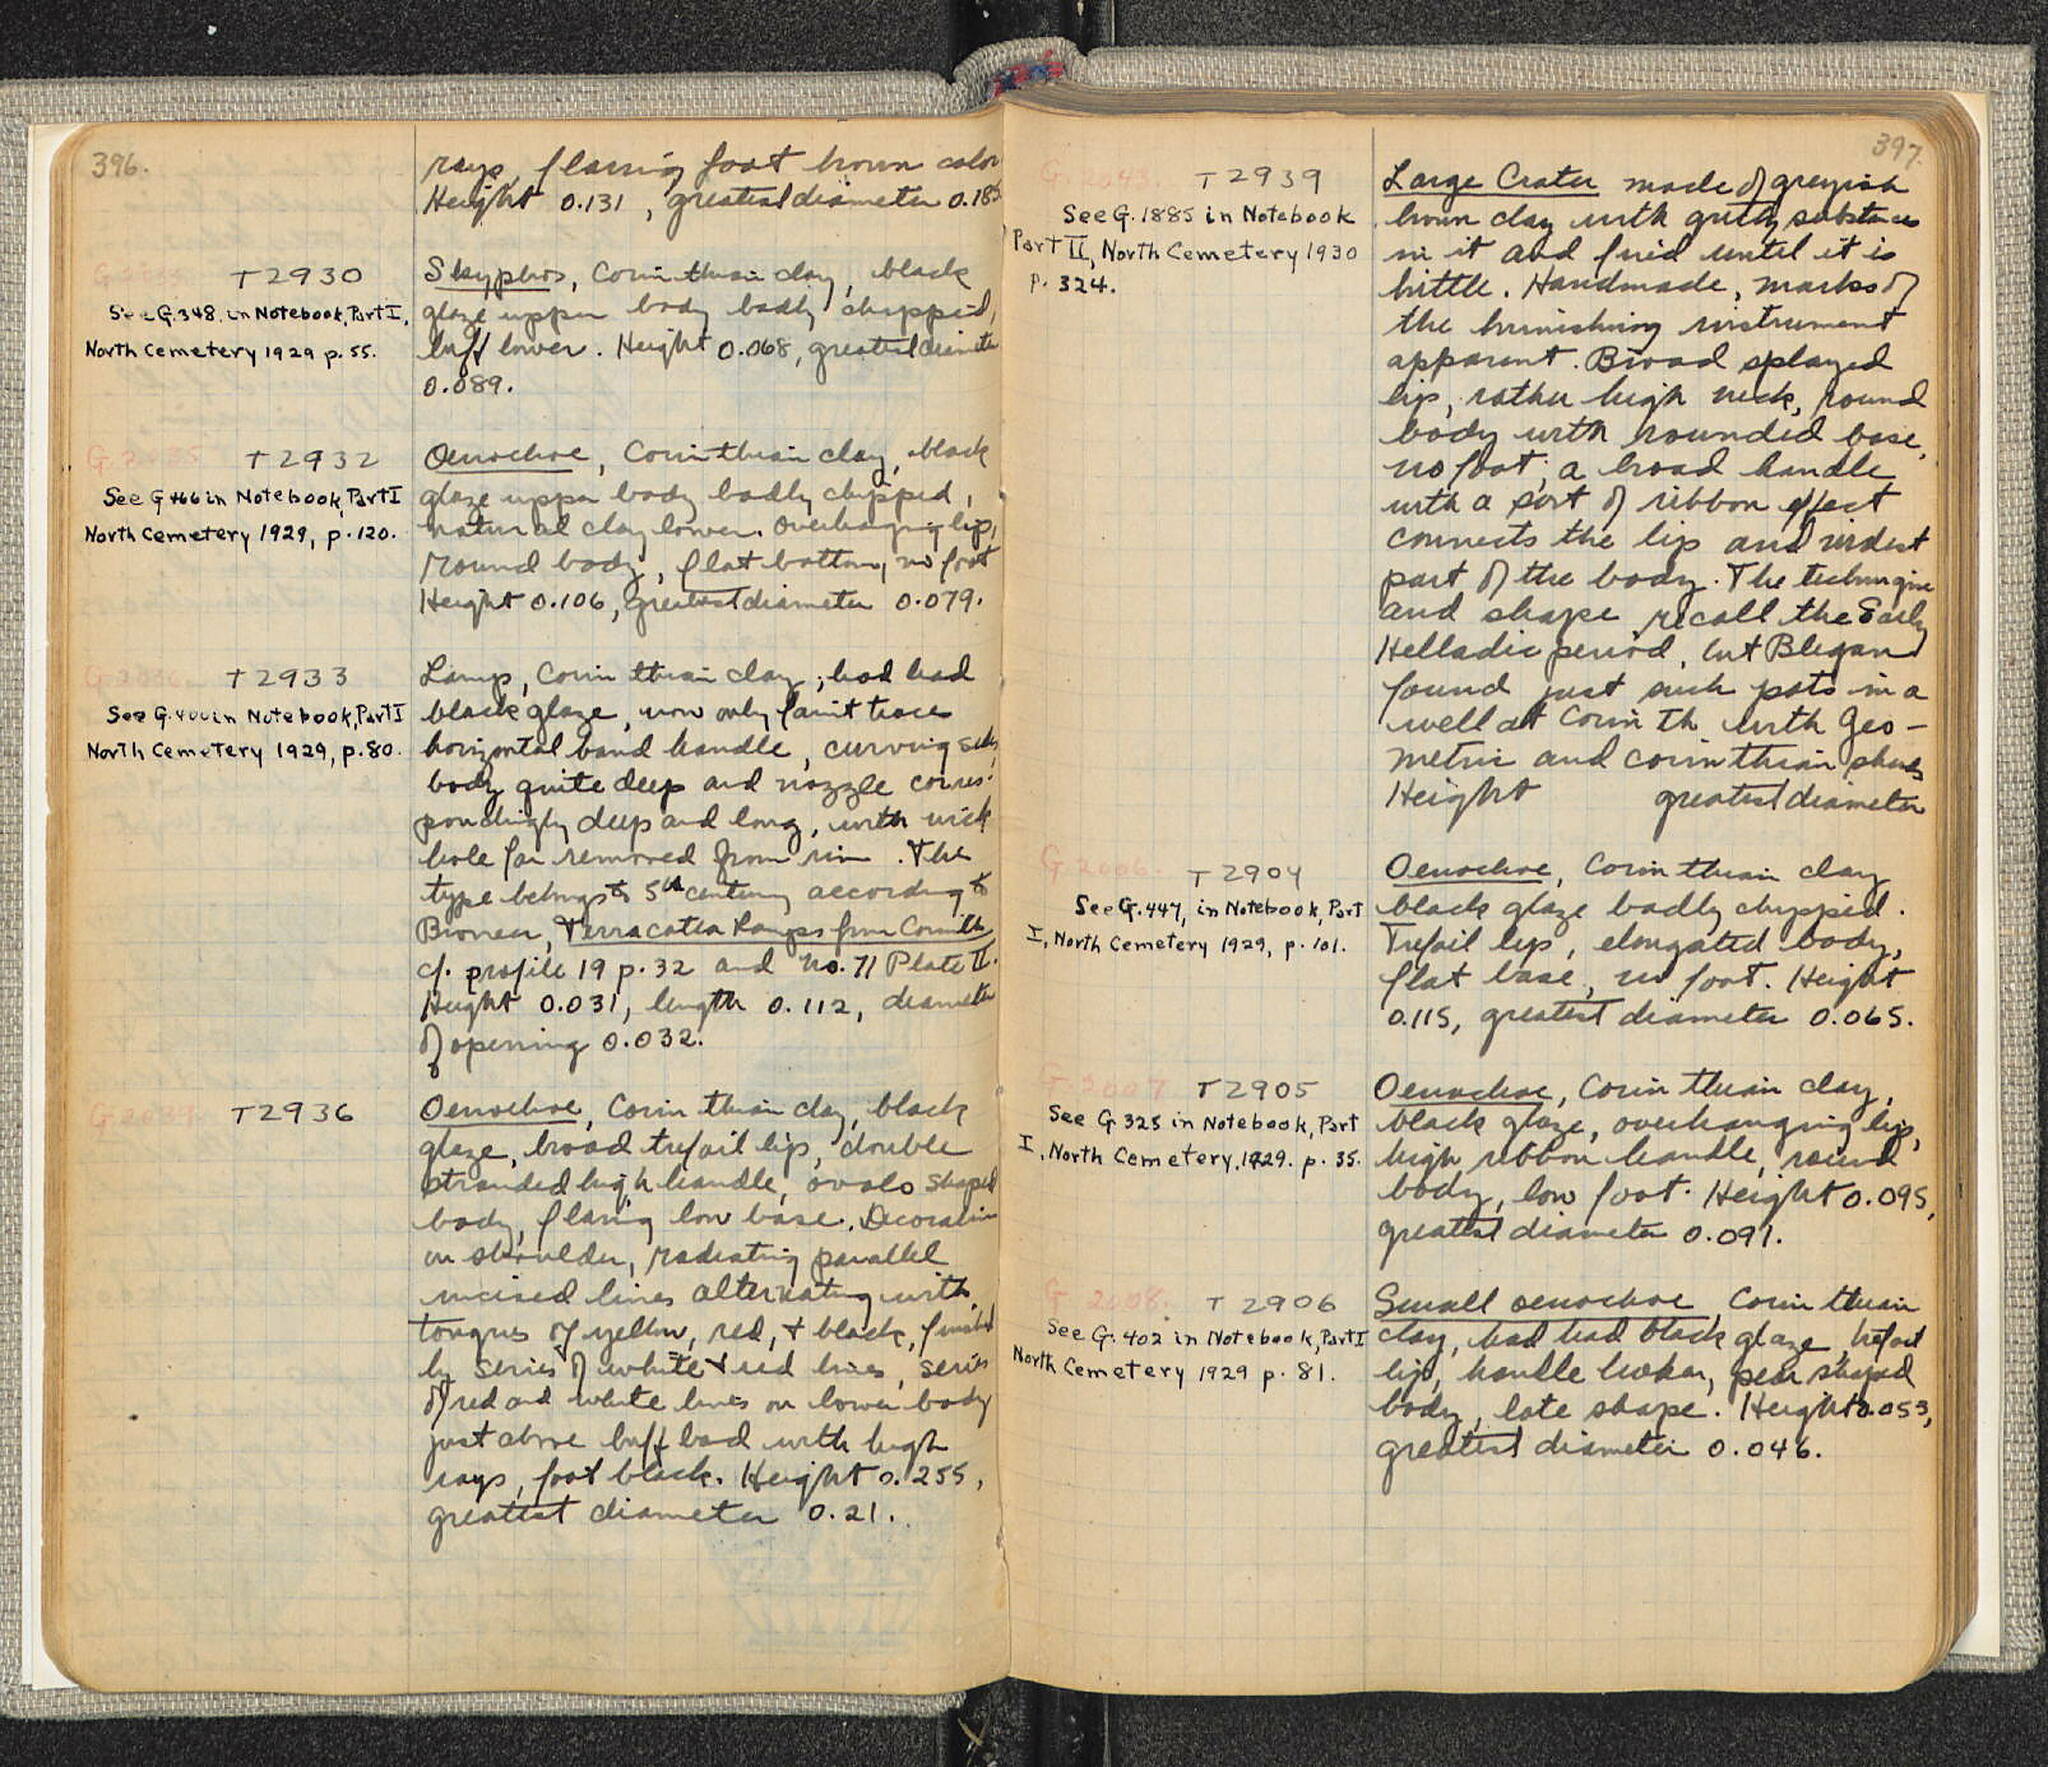 396.
rays, flaring foot brown color
Height 0.131, greatest diameter 0.185
T2930
See G.348. in Notebook, Part I,
North Cemetery 1929 p. 55.
Skyphos, Corinthian clay, black
glaze upper body badly chipped,
buff lower. Height 0.068, greatest diameter
0.089.
T2932
See G 466 in Notebook, Part I
North Cemetery 1929, p. 120.
Oenochoe, Corinthian clay, black
glaze upper body badly chipped,
natural clay lower. Overhanging lip,
round body, flat bottom, no foot
Height 0.106, greatest diameter 0.079.
T2933
See G.400 in Notebook, Part I
North Cemetery 1929, p. 80.
Lamp, Corinthian clay, had had
black glaze, now only faint traces
horizontal band handle, curving sides,
body quite deep and nozzle corres-
pondingly deep and long, with wick
hole far removed from rim. The
type belongs to 5th century according to
Broneer, Terracotta Lamps from Corinth
cf. profile 19 p. 32 and No. 71 Plate II.
Height 0.031, length 0.112, diameter
of opening 0.032.
G.2039. T2936
Oenochoe, Corinthian clay, black
glaze, broad trefoil lip, double
stranded high handle, ovalo shaped
body, flaring low base. Decoration
on shoulder, radiating parallel
incised lines alternating with
tongues of yellow, red, + black, finished
by series of white + red lines, series
of red and white lines on lower body
just above buff bad with high
rays, foot black. Height 0.255,
greatest diameter 0.21.
397.
G.2043. T2939
See G.1885 in Notebook
Part II, North Cemetery 1930
p. 324.
Large Crater made of greyish
brown clay with gritty substances
in it and fried until it is
brittle. Handmade, marks of
the burnishing instrument
apparent. Broad splayed
lip, rather high neck, round
body with rounded base,
no foot; a broad handle
with a sort of ribbon effect
connects the lip and widest
part of the body. The technique
and shape recall the Early
Helladic period, but Blegan
found just such pots in a
well at Corinth with Geo-
metric and Corinthian sherds
Height greatest diameter
G.2006. T2904
See G.447, in Notebook, Part
I, North Cemetery 1929, p. 101.
Oenochoe, Corinthian clay
black glaze badly chipped.
Trefoil lip, elongated body,
flat base, no foot. Height
0.115, greatest diameter 0.065.
G.2007 T2905
See G 325 in Notebook, Part
I, North Cemetery, 1929. p. 35.
Oenochoe, Corinthian clay,
black glaze, overhanging lip,
high ribbon handle, round
body, low foot. Height 0.095,
greatest diameter 0.091.
G 2008. T 2906
See G. 402 in Notebook, Part I
North Cemetery 1929 p. 81.
Small oenochoe, Corinthian
clay, had had black glaze, trefoil
lip, handle broken, pear shaped
body, late shape. Height 0.053,
greatest diameter 0.046.